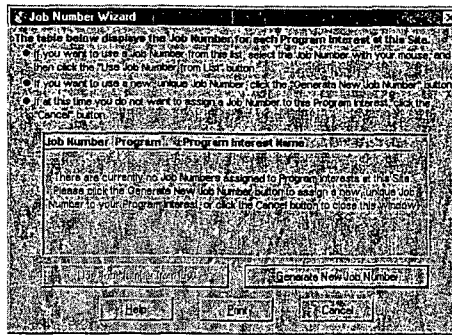 Job Number Wizard
The table below displays the Job Number for each Program Interest at this Site.
If you want to use a Job Number from this list, select the Job Number with your mouse, and
then click the "Use Job Number from List" button
If you want to use a new, unique Job Number, click the "Generate New Job Number" button
If at this time you do not want to assign a Job Number to this Program Interest, click the
"Cancel" button
Job Number Program Program Interest Name
There are currently no Job Numbers assigned to Program Interests at this Site.
Please click the Generate New Job Number button to assign a new, unique Job
Number to your Program Interest, or click the Cancel button to close this Window
Generate New Job Number
Help Print Cancel